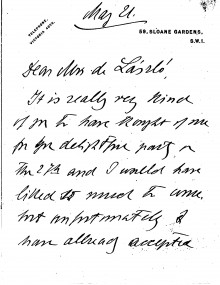 May 21.
TELEPHONE:
VICTORIA
59, SLOANE GARDENS,
S.W.1.
Dear Mrs de László,
It is really very kind
of you to have thought of me
for your delightful party on
the 27th and I would have
liked so much to come,
but unfortunately I
have already accepted